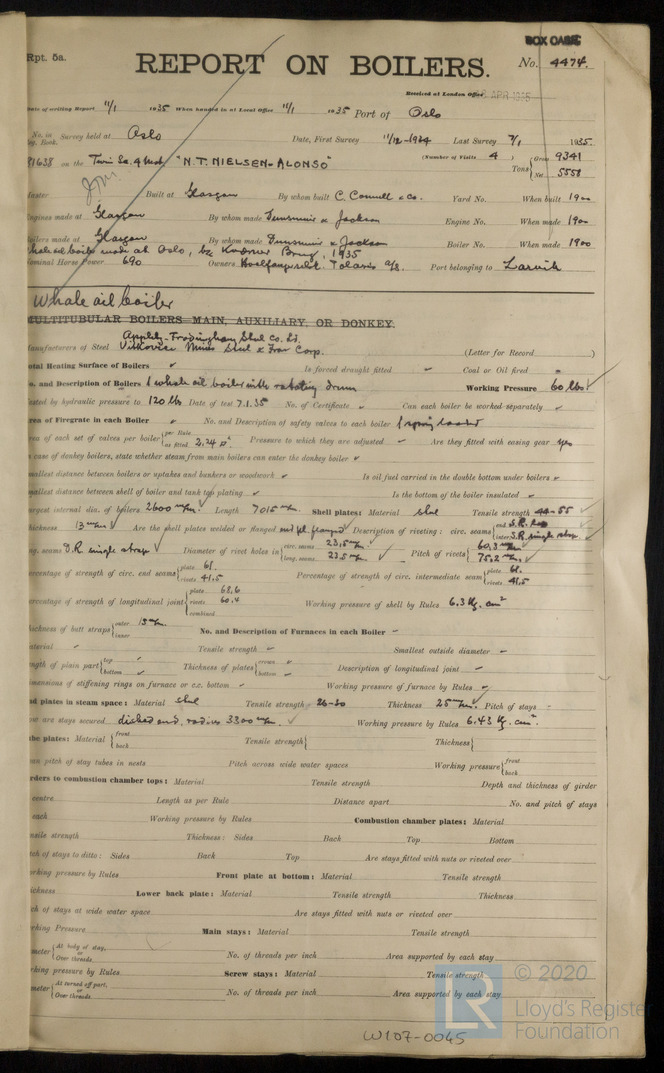 Rpt. 5a.
BOX
REPORT ON BOILERS.
No. 4474.
Received at London Office APR 1935
Date of writing Report 11/1 1935 When handed in at Local Office 11/1 1935 Port of Oslo
No. in Survey held at Oslo Date, First Survey 11/12-1934 Last Survey 7/1 1935.
Reg. Book. (Number of Visits 4 )
81638 on the "N.T. NIELSEN-ALONSO" Tons Gross 9341 Net 5558
Built at Glasgow By whom built C. Connell & Co. Yard No. When built 1900
Engines made at Glasgow By whom made Dunsmuir & Jackson Engine No. When made 1900
Boilers made at Glasgow By whom made Dunsmuir & Jackson Boiler No. When made 1900
Whale oil boiler made at Oslo, by Brug, 1935
Nominal Horse Power 690 Owners Hvalfangerselsk. Polaris A/S. Port belonging to Larvik
Whale oil boiler
MULTITUBULAR BOILERS—MAIN, AUXILIARY, OR DONKEY.
Appleby-Frodingham Steel Co. Ld.
Manufacturers of Steel Vitkovice Mines Steel & Iron Corp. (Letter for Record )
Total Heating Surface of Boilers Is forced draught fitted Coal or Oil fired
No. and Description of Boilers 1 whale oil boiler with rotating drum Working Pressure 60 lbs
Tested by hydraulic pressure to 120 lbs Date of test 7.1.35 No. of Certificate Can each boiler be worked separately
Area of Firegrate in each Boiler No. and Description of safety valves to each boiler 1 spring loaded
Area of each set of valves per boiler per Rule as fitted 2.24 Pressure to which they are adjusted Are they fitted with easing gear yes
In case of donkey boilers, state whether steam from main boilers can enter the donkey boiler
Smallest distance between boilers or uptakes and bunkers or woodwork Is oil fuel carried in the double bottom under boilers
Smallest distance between shell of boiler and tank top plating Is the bottom of the boiler insulated
Largest internal dia. of boilers 2600 m/m. Length 7015 m/m. Shell plates: Material steel Tensile strength 44-55
Thickness 13 m/m Are the shell plates welded or flanged end pl. flanged Description of riveting: circ. seams end S.R. inter. S.R. single strap
long. seams D.R. single strap Diameter of rivet holes in circ. seams 23.5 m/m. long. seams 23.5 m/m. Pitch of rivets 60.3 m/m 75.2 m/m.
Percentage of strength of circ. end seams plate 61. rivets 41.5 Percentage of strength of circ. intermediate seam plate 61. rivets 41.5
Percentage of strength of longitudinal joint plate 68.6 rivets 60.4 combined Working pressure of shell by Rules 6.3 Kg. cm²
Thickness of butt straps outer 13 m/m. inner No. and Description of Furnaces in each Boiler
Material Tensile strength Smallest outside diameter
Length of plain part top bottom Thickness of plates crown bottom Description of longitudinal joint
Dimensions of stiffening rings on furnace or c.c. bottom Working pressure of furnace by Rules
End plates in steam space: Material steel Tensile strength 26-30 Thickness 25 m/m. Pitch of stays
How are stays secured dished end, radius 3300 m/m. Working pressure by Rules 6.43 Kg. cm².
Tube plates: Material front back Tensile strength Thickness
Mean pitch of stay tubes in nests Pitch across wide water spaces Working pressure front back
Girders to combustion chamber tops: Material Tensile strength Depth and thickness of girder
at centre Length as per Rule Distance apart No. and pitch of stays
in each Working pressure by Rules Combustion chamber plates: Material
Tensile strength Thickness: Sides Back Top Bottom
Pitch of stays to ditto: Sides Back Top Are stays fitted with nuts or riveted over
Working pressure by Rules Front plate at bottom: Material Tensile strength
Thickness Lower back plate: Material Tensile strength Thickness
Pitch of stays at wide water space Are stays fitted with nuts or riveted over
Working Pressure Main stays: Material Tensile strength
Diameter At body of stay, or Over threads No. of threads per inch Area supported by each stay
Working pressure by Rules Screw stays: Material Tensile strength
Diameter At turned off part, or Over threads No. of threads per inch Area supported by each stay
W107-0045
LR
© 2020
Lloyd's Register
Foundation